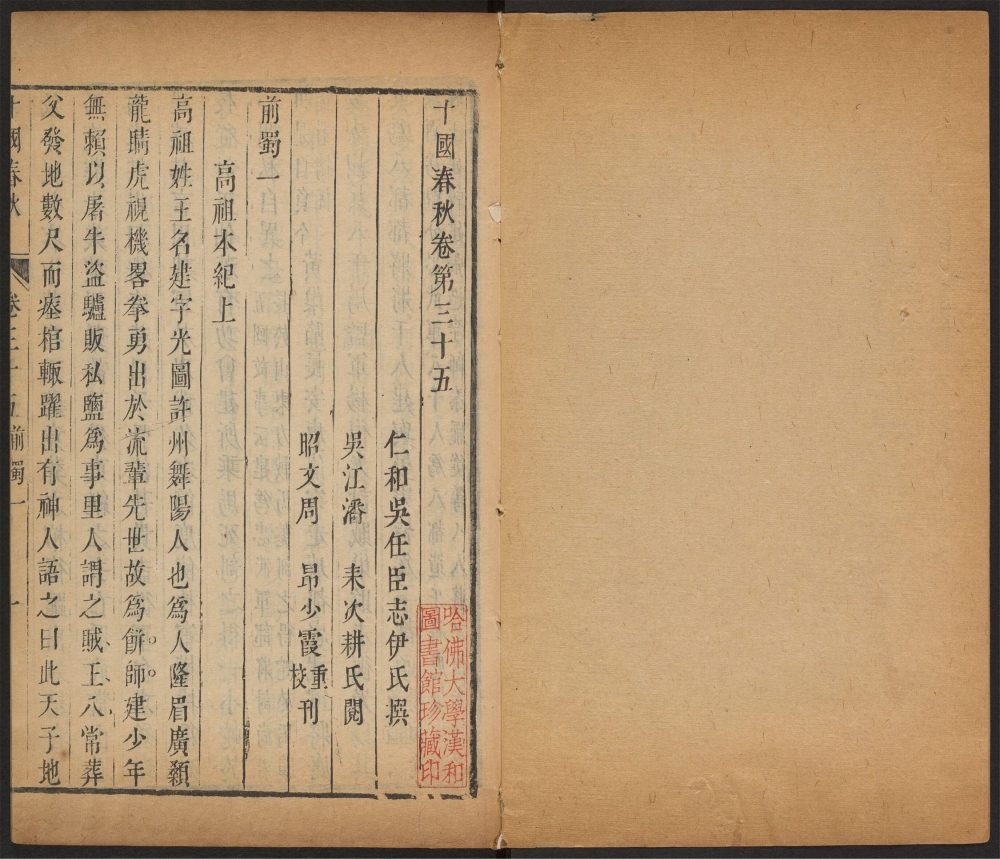 十國春秋卷第三十五
仁和吳任臣志伊氏撰
吳江潘耒次耕氏閱
昭文周昂少霞重校刊
前蜀一
高祖本紀上
高祖姓王名建字光圖許州舞陽人也爲人隆眉廣顙
龍睛虎視機畧拳勇出於流輩先世故爲餅師建少年
無賴以屠牛盜驢販私鹽爲事里人謂之賊王八常葬
父發地數尺而瘞棺輙躍出有神人語之曰此天子地
十國春秋 卷三十五前蜀一 一
哈佛大學漢和
圖書館珍藏印